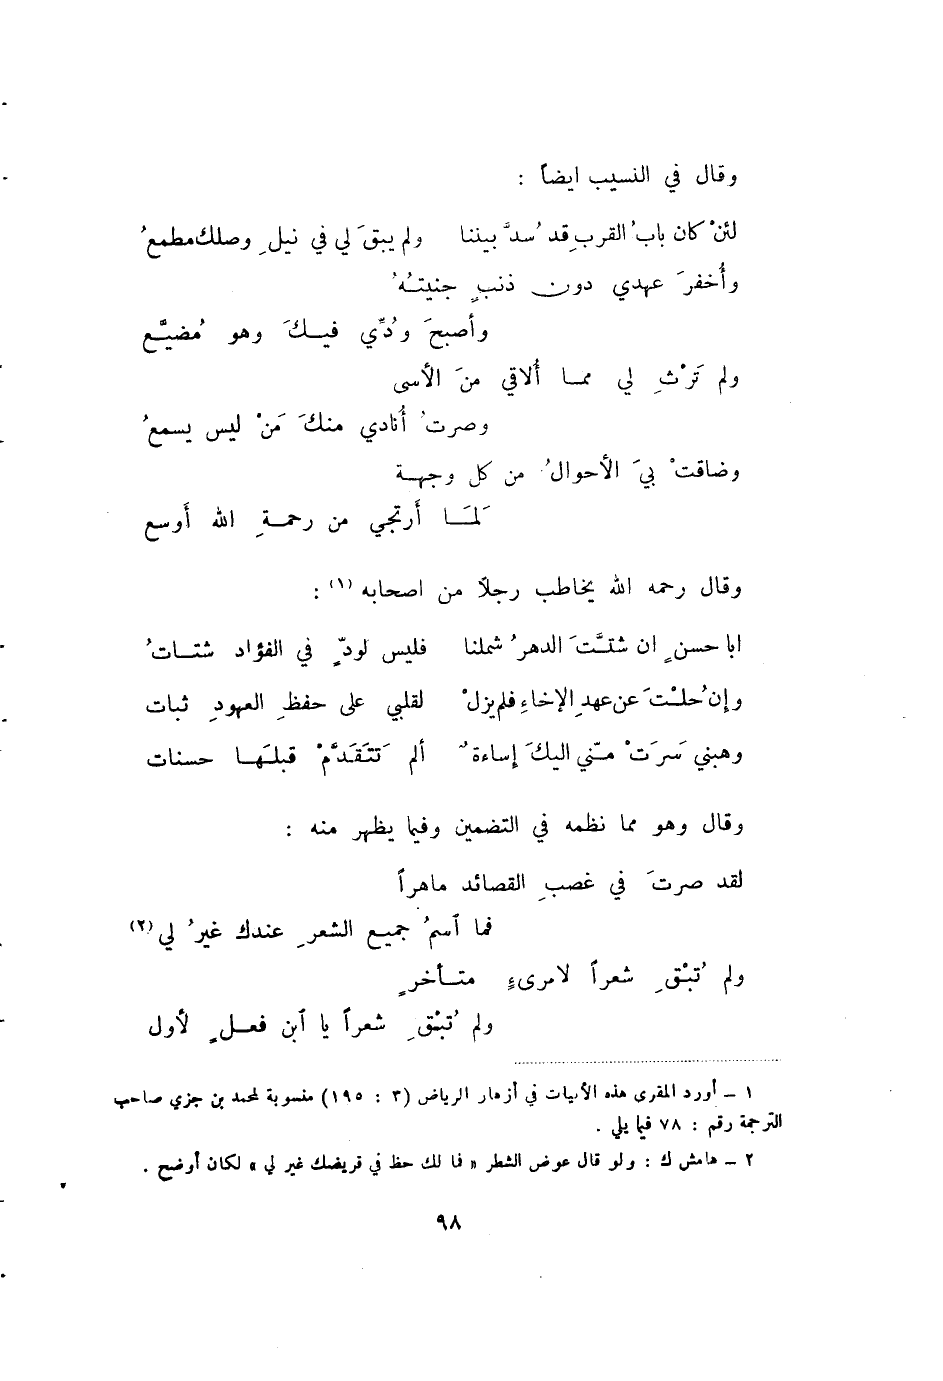 وقال في النسيب ايضاً :
لئنْ كان بابُ القربِ قد سُدَّ بيننا ولم يبقَ لي في نيلِ وصلك مطمعُ
وأُخفرَ عهدي دون ذنبٍ جنيتُهُ
وأصبحَ وُدِّي فيكَ وهو مُضيَّع
ولم تَرْثِ لي مما أُلاقي منَ الأسى
وصرتُ أُنادي منكَ مَنْ ليس يسمعُ
وضاقتْ بيَ الأحوالُ من كل وجهة
لَمَا أرتجي من رحمةِ الله أَوسع
وقال رحمه الله يخاطب رجلاً من اصحابه (١) :
ابا حسنٍ ان شتَّتَ الدهرُ شملنا فليس لودٍّ في الفؤاد شتاتُ
وإن حُلْتَ عن عهدِ الإخاءِ فلم يزلْ لقلبي على حفظِ العهودِ ثبات
وهبني سَرَتْ منّي اليكَ إساءةٌ ألم تَتَقَدَّمْ قبلَهَا حسنات
وقال وهو مما نظمه في التضمين وفيما يظهر منه :
لقد صرتَ في غصبِ القصائد ماهراً
فما آسمُ جميع الشعرِ عندك غيرُ لي (٢)
ولم تُبْقِ شعراً لامرىءٍ متأخرٍ
ولم تُبْقِ شعراً يا آبن فعلٍ لأول
١ – أورد المقري هذه الأبيات في أزهار الرياض (٣ : ١٩٥) منسوبة لمحمد بن جزي صاحب
الترجمة رقم : ٧٨ فيما يلي .
٢ – هامش ك : ولو قال عوض الشطر « فما لك حظ في قريضك غير لي » لكان أوضح .
٩٨